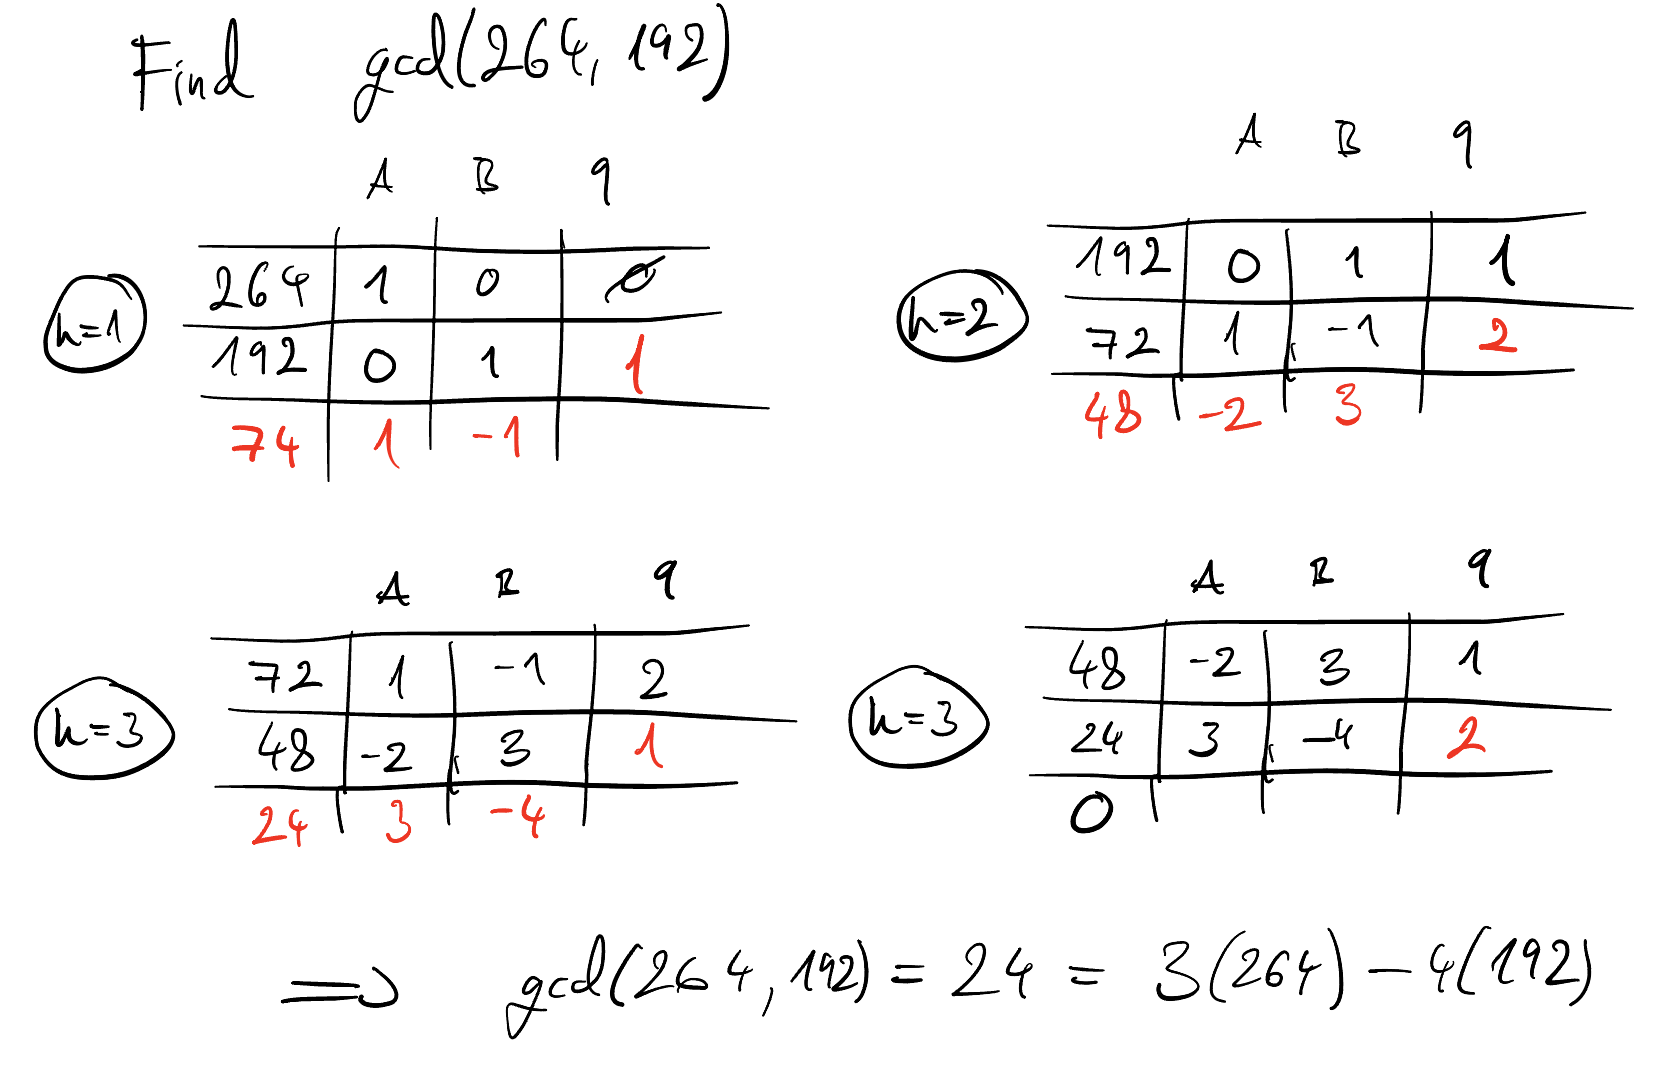 Find gcd(264, 192)
A B q
n=1
264 1 0 0
192 0 1 1
74 1 -1
A B q
n=2
192 0 1 1
72 1 -1 2
48 -2 3
A B q
n=3
72 1 -1 2
48 -2 3 1
24 3 -4
A B q
n=3
48 -2 3 1
24 3 -4 2
0
=> gcd(264, 192) = 24 = 3(264) - 4(192)